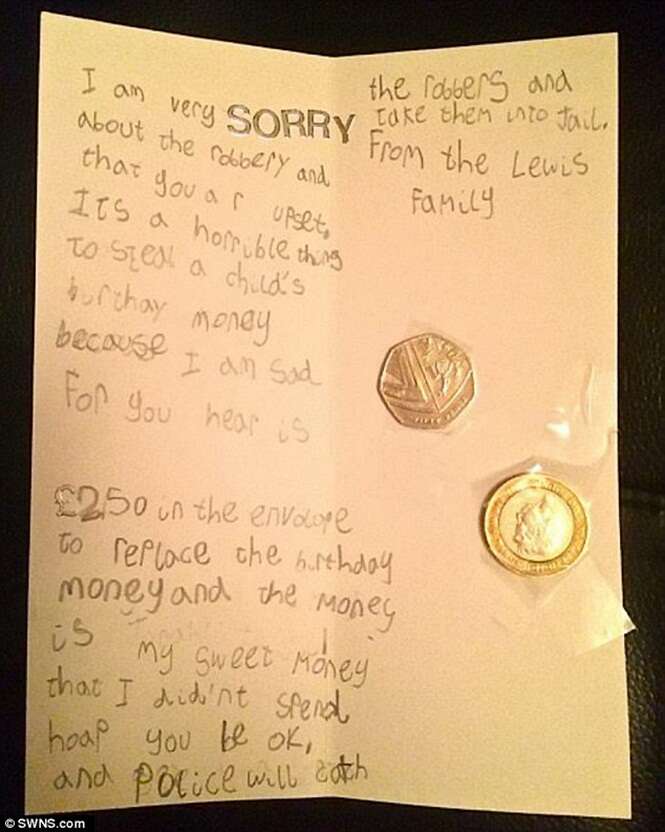 I am very SORRY
about the robbery and
that you ar upset,
Its a horrible thing
to steal a child's
burthay money
because I am sad
For you hear is
£2.50 in the envolope
to replace the birthday
money and the money
is my sweet money
that I didn't spend
hoap you be ok,
and Police will catch
the robbers and
take them into Jail.
From the Lewis
Family
© SWNS.com